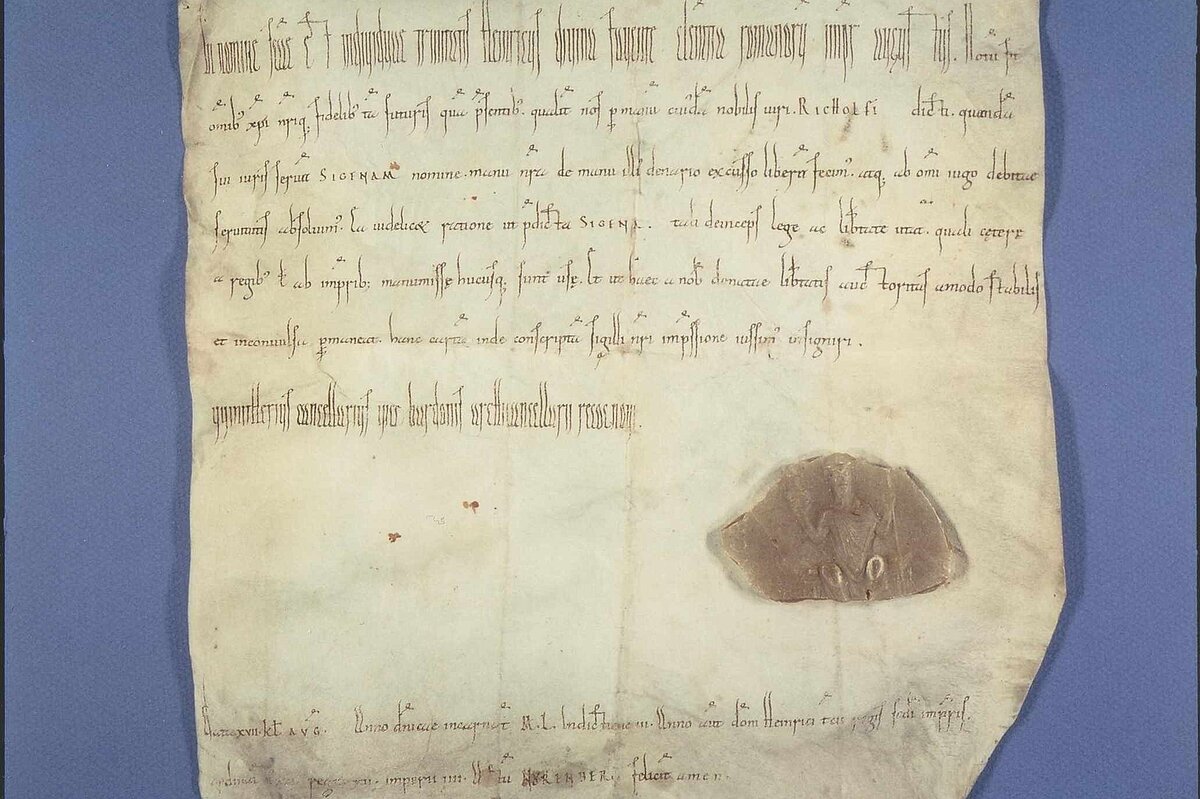 In nomine sc̄ae et individuae trinitatis Heinricus divina favente clementia romanorū impr augustus. Notū sit
omib' xpi nriq; fidelib' tā futuris quā p̄sentib'. qualit nos p manū cuidā nobilis viri. RICHOLFI dicti. quandā
sui iuris servā SIGENAM nomine. manu nr̄a de manu illi denario excusso liberā fecim'. atq; ab om̄i iugo debitae
servitutis absolvim'. Ea videlicet ratione ut p̄dicta SIGENA. tali deinceps lege ac lib̄tate utat. quali cętere
a regib' t ab imp̄rib; manumissę hucusq; sunt usę. Et ut haec a nob donatae lib̄tatis auctoritas amodo stabilis
et inconvulsa p̱maneat. hanc cartā inde conscriptā sigilli nr̄i imp̄ssione iussim' insigniri.
cancellarius vice bardonis archicancellarii recognovi.
Data xvii. kł AVG. Anno dn̄icae incarnat M.L. Indictione iii. Anno aut dom̄ Heinrici tcii regis scdi imp̄ris.
imperii iiii. Actū NORENBERC feliciť amen.